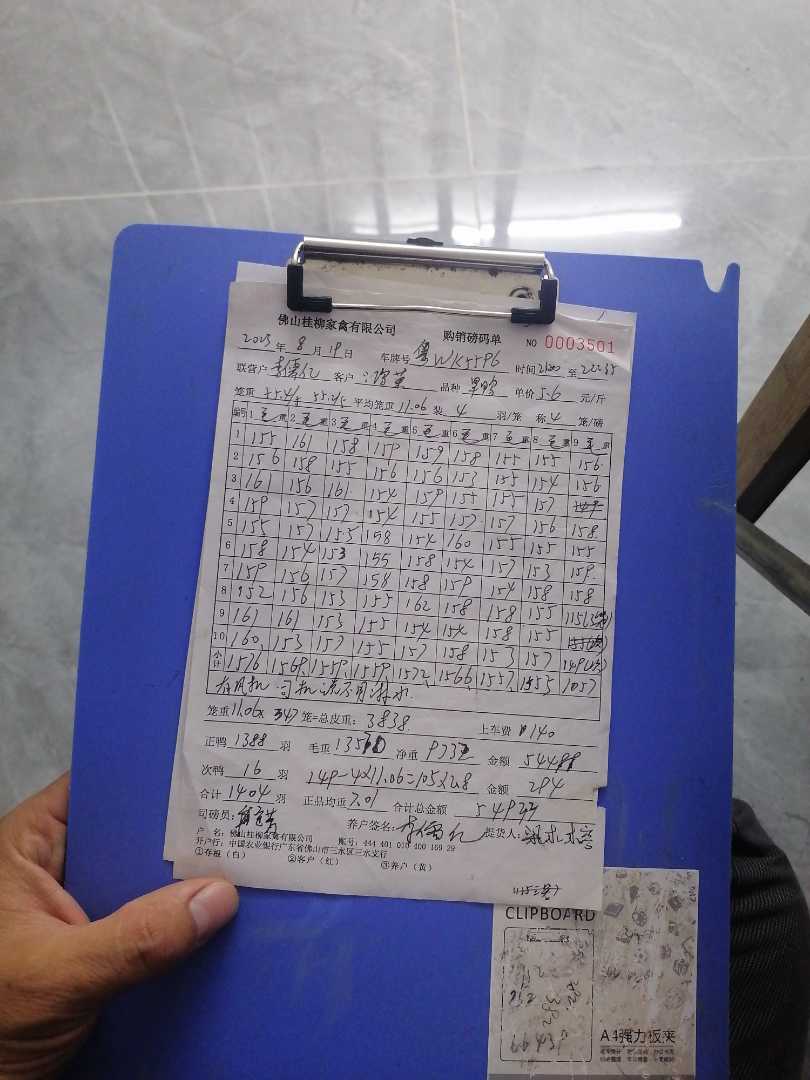 佛山桂柳家禽有限公司 购销磅码单 NO 0003501
2023 年 8 月 19 日 车牌号 粤WK5596 时间 至 22:35
联营户 客户 品种 单价 5.6 元/斤
笼重 平均笼重 11.06 装 4 羽/笼 称 4 笼/磅
编号 1 毛重 2 毛重 3 毛重 4 毛重 5 毛重 6 毛重 7 毛重 8 毛重 9 毛重
1 155 161 158 159 159 158 155 155 156
2 156 158 155 156 156 153 155 154 156
3 161 156 161 154 159 155 155 157
4 159 157 157 154 155 157 157 156 158
5 155 157 155 158 154 160 155 155 155
6 158 154 153 155 158 154 157 153 159
7 159 156 157 158 158 159 154 158 158
8 152 156 153 155 162 158 158 155
9 161 161 153 155 154 154 158 155
10 160 153 157 155 157 158 153 157 149
小计 1576 1568 1559 1559 1572 1566 1557 1553 1057
笼重 11.06 × 347 笼=总皮重: 3838 上车费 140
正鸭 1388 羽 毛重 净重 9732 金额
次鸭 16 羽 149-4×11.06=105×2.8 金额 294
合计 1404 羽 正品均重 7.01 合计总金额
司磅员: 养户签名: 提货人:
户 名: 佛山桂柳家禽有限公司 账号: 444 401 010 400 169 29
开户行: 中国农业银行广东省佛山市三水区三水支行
①存根（白） ②客户（红） ③养户（黄）
CLIPBOARD
A4强力板夹